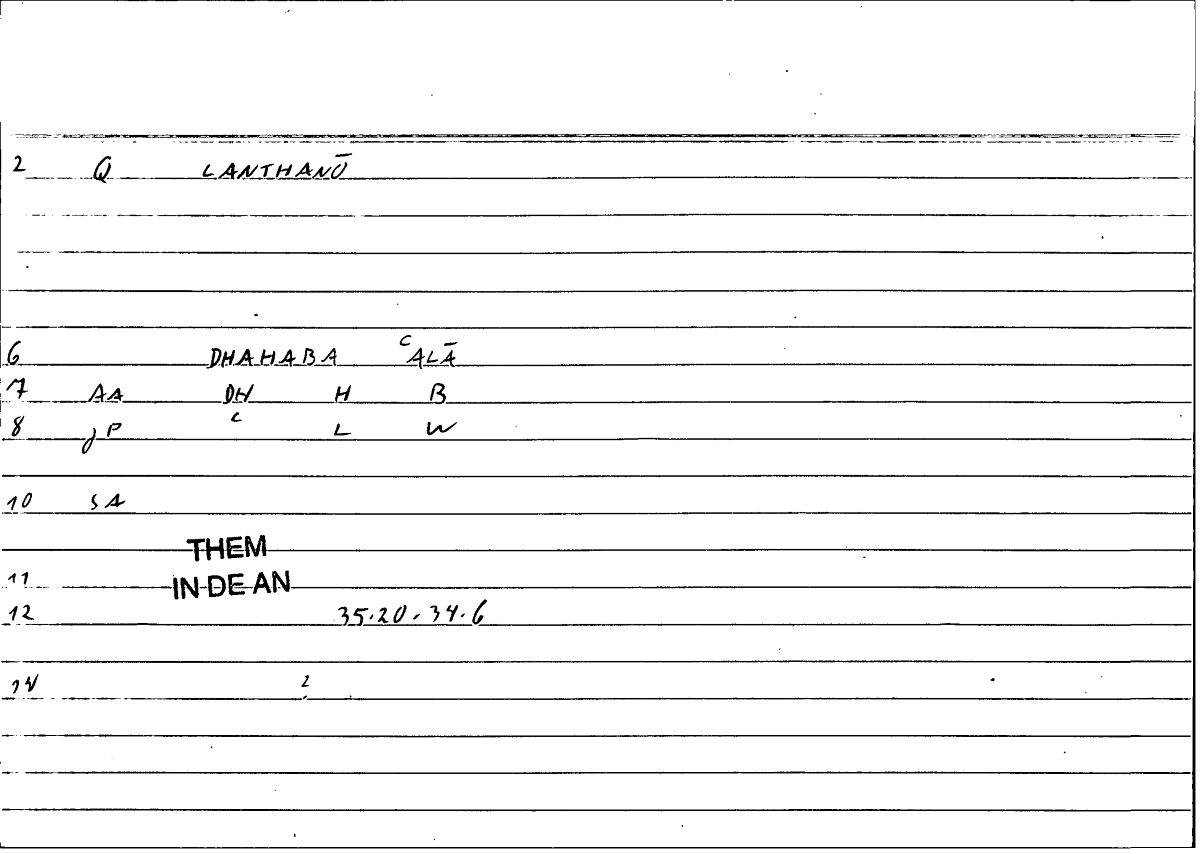 2 Q LANTHANŌ
6 DHAHABA ʿALĀ
7 AA DH H B
8 jP ʿ L W
10 SA
THEM
11 IN DE AN
12 35.20.34.6
14 2